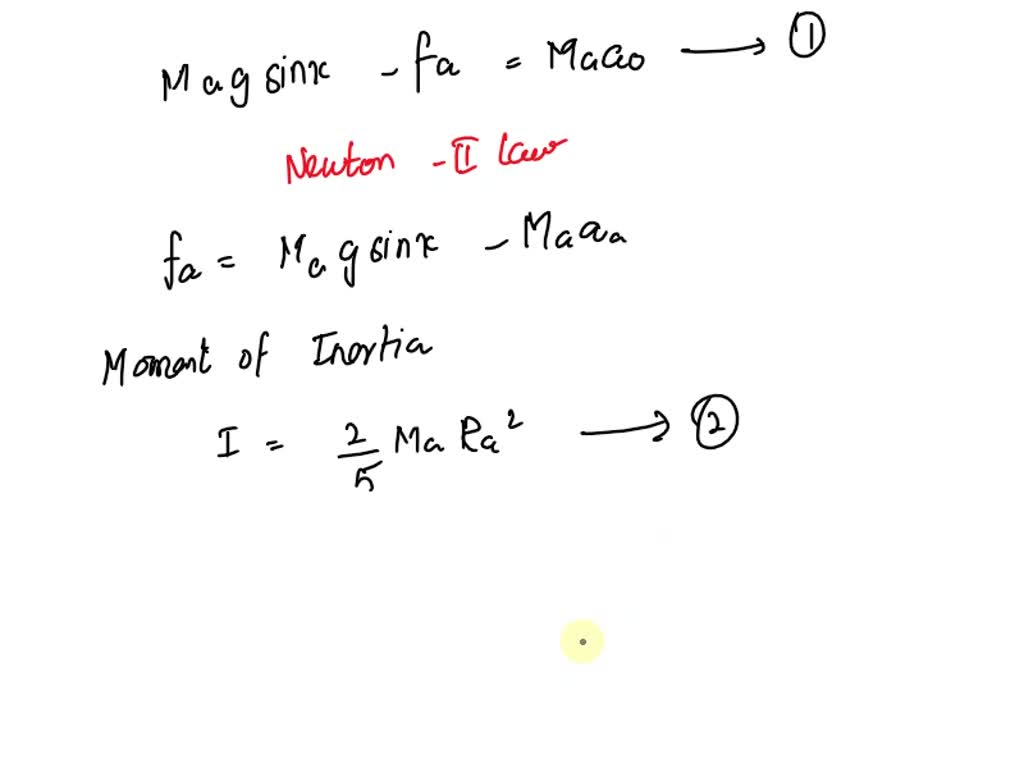 Mag sinx - fa = Maao → ①
Newton - II law
fa = Mag sinx - Maaa
Moment of Inertia
I = 2/5 Ma Ra² → ②